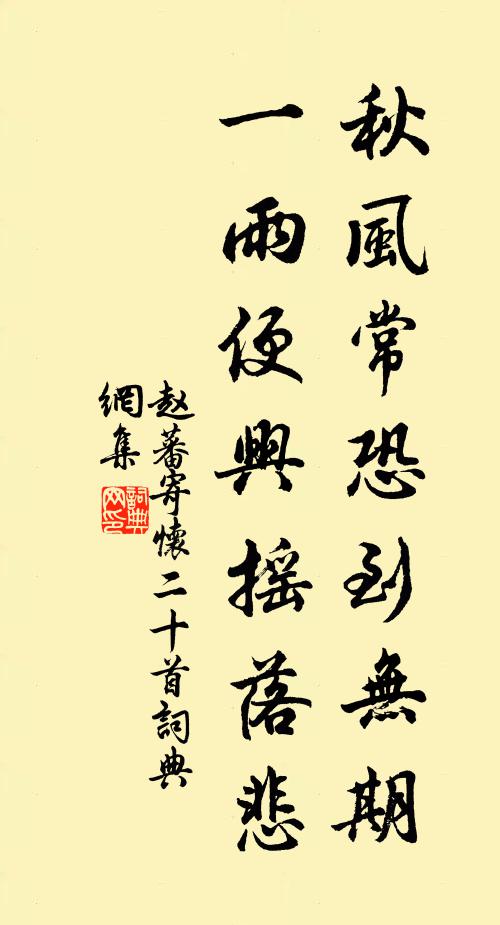 秋風常恐到無期
一雨便興摇落悲
赵蕃寄懷二十首詞典
網集
詞典
网印